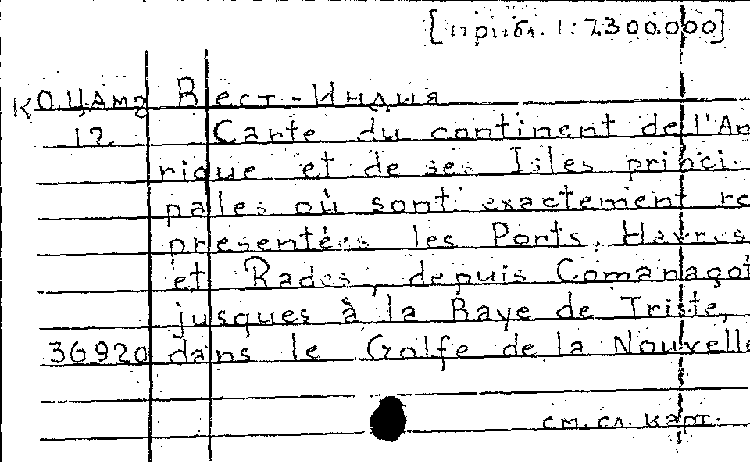 [прибл. 1:7.300.000]
К О.Ц.АмЭ Вест-Индия
12. Carte du continent de l'Am
rique et de ses Isles princi-
pales où sont exactement re
présentées les Ports, Havres
et Rades, depuis Comanagot
jusques à la Baye de Triste,
36920 dans le Golfe de la Nouvelle
см. сл. карт.